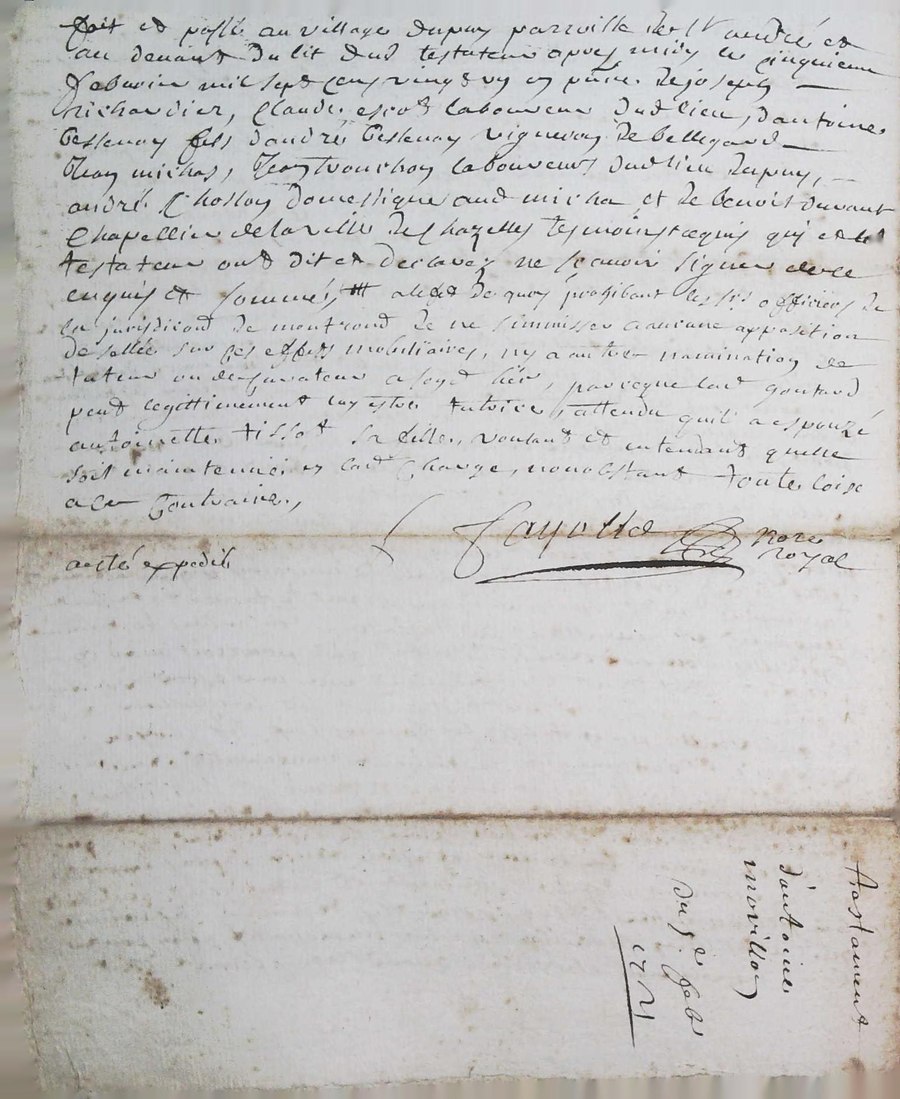 fait et passé au village dupuy parroisse de st andré et
au devant du lit dud testateur apres midy le cinquieme
febvrier mil sept cens vingt un en pnce de joseph
richardier, Claude escot laboureur dud lieu, dantoine
fils dandré vigneron de bellegard
Jean michas, Jean laboureurs dud lieu dupuy,
andré Chollon domestique aud micha et de benoit durant
Chapellier de la ville de Chazelles tesmoins requis qui et led
testateur ont dit et declarez ne sçavoir signer de ce
enquis et sommés de quoy prohibant les srs officiers de
la juridicond de montrond de ne simmisser a aucune apposition
de sellée sur ses effets mobiliaires, ny a autre nomination de
tuteur ou de curateur a sond hér, parceque lad goutard
peut legittimement luy estre tutrice, attendu quil a espouzé
antoinette tissot sa fille, voulant et entendant quelle
soit maintenue en lad Charge, nonobstant toutes loix
a ce Contraire,
Cayotte nore
royal
acte expedié
Testament
d'antoine
movillon
du 5e feb
1721